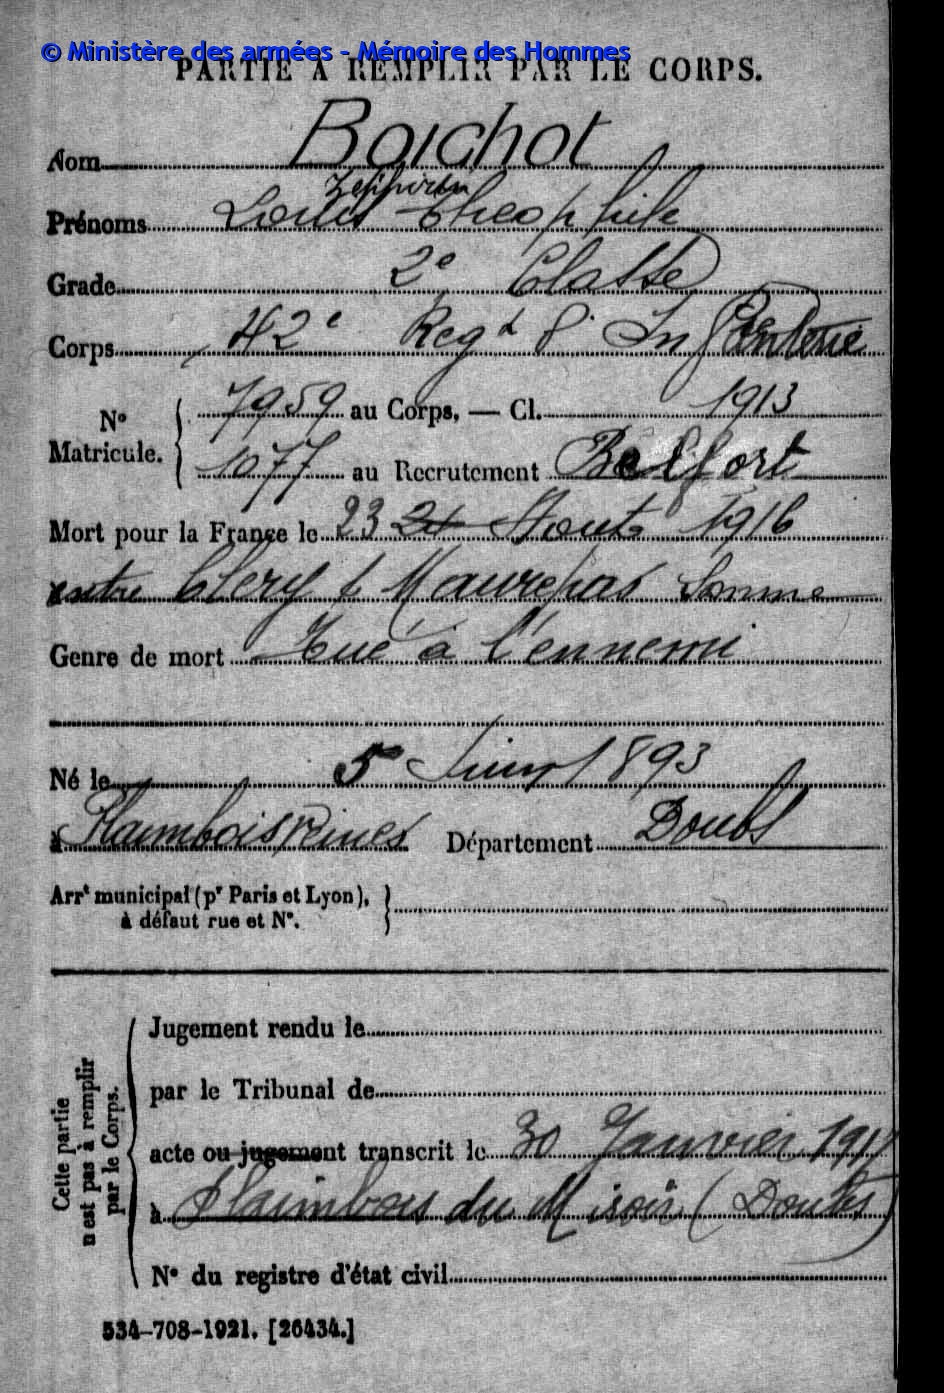 © Ministère des armées - Mémoire des Hommes
PARTIE À REMPLIR PAR LE CORPS.
Nom Boichot
Zephirin
Prénoms Louis Theophile
Grade 2e Classe
Corps 42e Regt d' Infanterie
No Matricule. 7959 au Corps, — Cl. 1913
1077 au Recrutement Belfort
Mort pour la France le 23 21 Aout 1916
entre Clery & Maurepas Somme
Genre de mort Tué à l'ennemi
Né le 5 Juin 1893
à Plaimbois Département Doubs
Arrt municipal (pr Paris et Lyon),
à défaut rue et No.
Cette partie
n'est pas à remplir
par le Corps.
Jugement rendu le
par le Tribunal de
acte ou jugement transcrit le 30 Janvier 1917
à Plaimbois du Miroir (Doubs)
No du registre d'état civil
534-708-1921. [26434.]